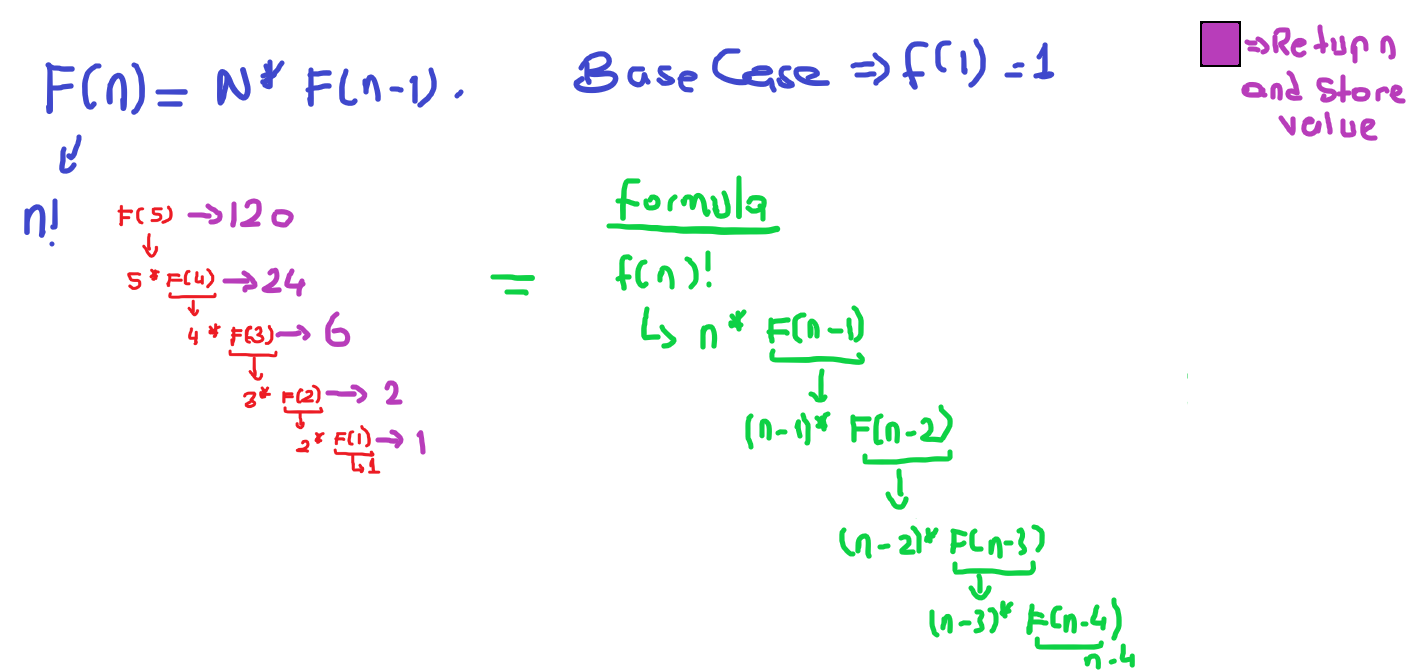 F(n) = N* F(n-1).
Base Case => f(1) = 1
=> Return
and store
value
n!
F(5) → 120
5 * F(4) → 24
4 * F(3) → 6
3* F(2) → 2
2* F(1) → 1
1
=
formula
f(n)!
↳ n* F(n-1)
(n-1)* F(n-2)
(n-2)* F(n-3)
(n-3)* F(n-4)
n-4